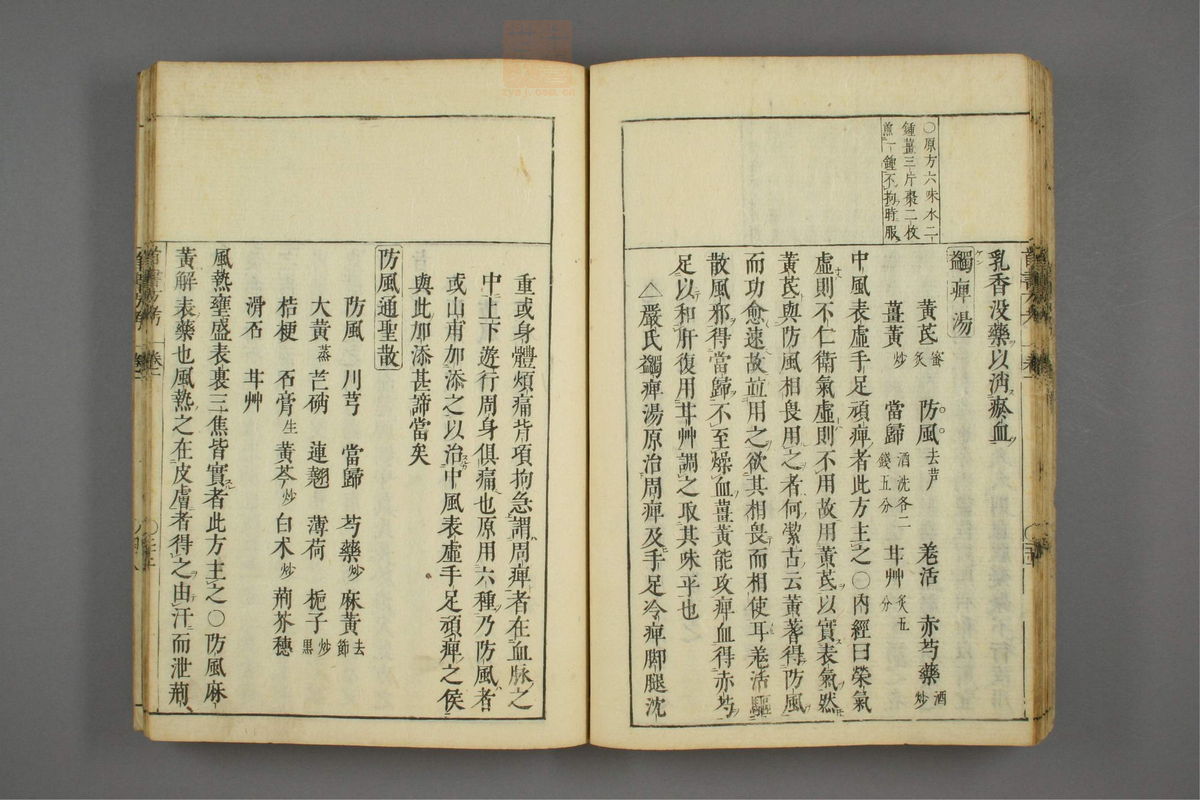 ○原方六味水二
鍾薑三片棗二枚
煎一鍾不拘時服
乳香没藥以消瘀血
蠲痺湯
黃芪蜜炙 防風去芦 羌活 赤芍藥酒炒
薑黃炒 當歸酒洗各二錢五分 甘艸炙五分
中風表虛手足頑痺者此方主之○內經曰榮氣
虛則不仁衛氣虛則不用故用黃芪以實表氣然
黃芪與防風相畏用之者何潔古云黃蓍得防風
而功愈速故並用之欲其相畏而相使耳羌活驅
散風邪得當歸不至燥血薑黃能攻痺血得赤芍
足以和肝復用甘艸調之取其味平也
△嚴氏蠲痺湯原治周痺及手足冷痺脚腿沈
重或身體煩痛背項拘急謂周痺者在血脉之
中上下遊行周身俱痛也原用六種乃防風者
或山甫加添之以治中風表虛手足頑痺之候
與此加添甚諦當矣
防風通聖散
防風 川芎 當歸 芍藥炒 麻黃去節
大黃蒸 芒硝 連翹 薄荷 梔子炒黑
桔梗 石膏生 黃芩炒 白朮炒 荊芥穗
滑石 甘艸
風熱壅盛表裏三焦皆實者此方主之○防風麻
黃解表藥也風熱之在皮膚者得之由汗而泄荊